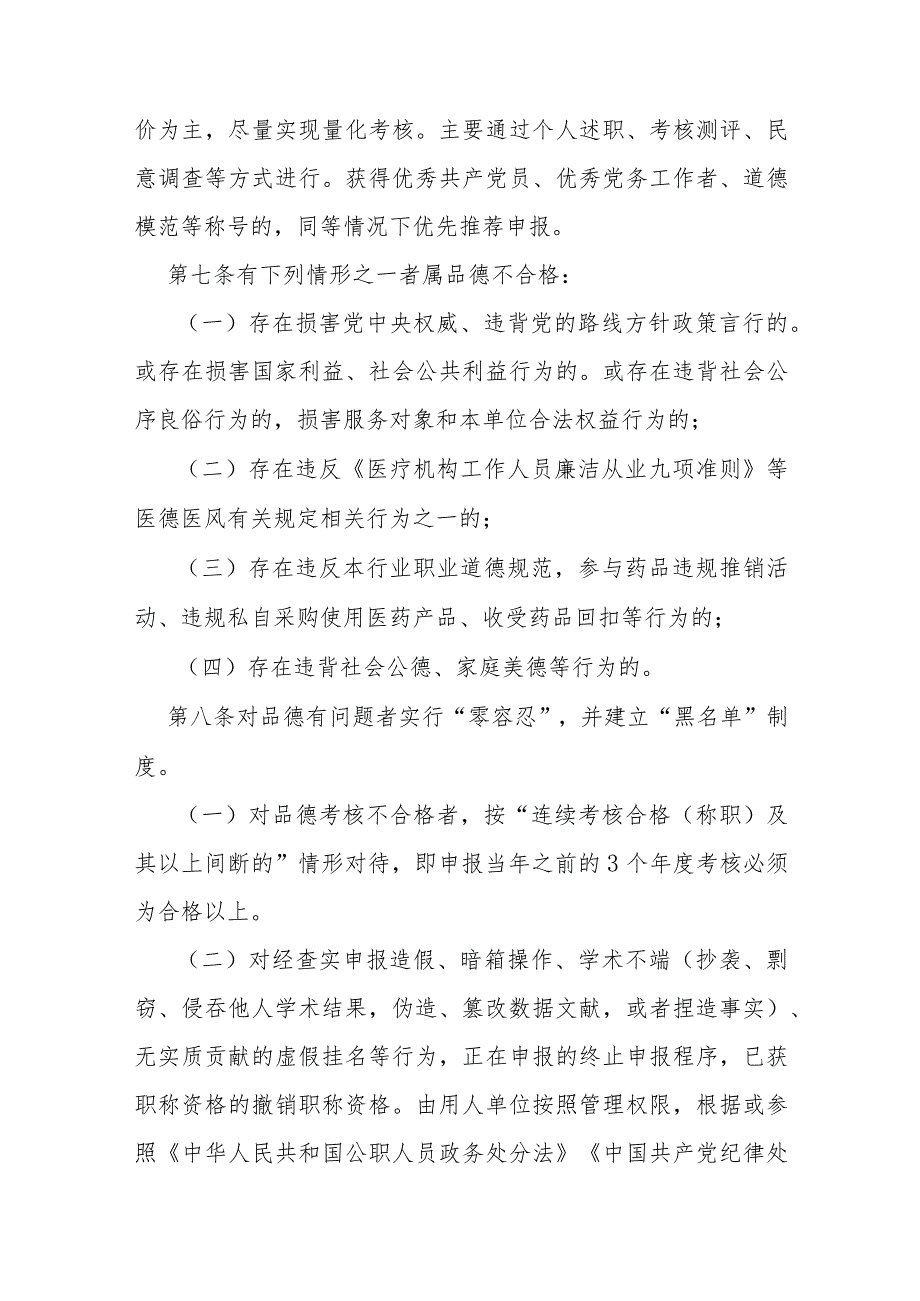 价为主，尽量实现量化考核。主要通过个人述职、考核测评、民
意调查等方式进行。获得优秀共产党员、优秀党务工作者、道德
模范等称号的，同等情况下优先推荐申报。
第七条有下列情形之一者属品德不合格：
（一）存在损害党中央权威、违背党的路线方针政策言行的。
或存在损害国家利益、社会公共利益行为的。或存在违背社会公
序良俗行为的，损害服务对象和本单位合法权益行为的；
（二）存在违反《医疗机构工作人员廉洁从业九项准则》等
医德医风有关规定相关行为之一的；
（三）存在违反本行业职业道德规范，参与药品违规推销活
动、违规私自采购使用医药产品、收受药品回扣等行为的；
（四）存在违背社会公德、家庭美德等行为的。
第八条对品德有问题者实行“零容忍”，并建立“黑名单”制
度。
（一）对品德考核不合格者，按“连续考核合格（称职）及
其以上间断的”情形对待，即申报当年之前的3个年度考核必须
为合格以上。
（二）对经查实申报造假、暗箱操作、学术不端（抄袭、剽
窃、侵吞他人学术结果，伪造、篡改数据文献，或者捏造事实）、
无实质贡献的虚假挂名等行为，正在申报的终止申报程序，已获
职称资格的撤销职称资格。由用人单位按照管理权限，根据或参
照《中华人民共和国公职人员政务处分法》《中国共产党纪律处